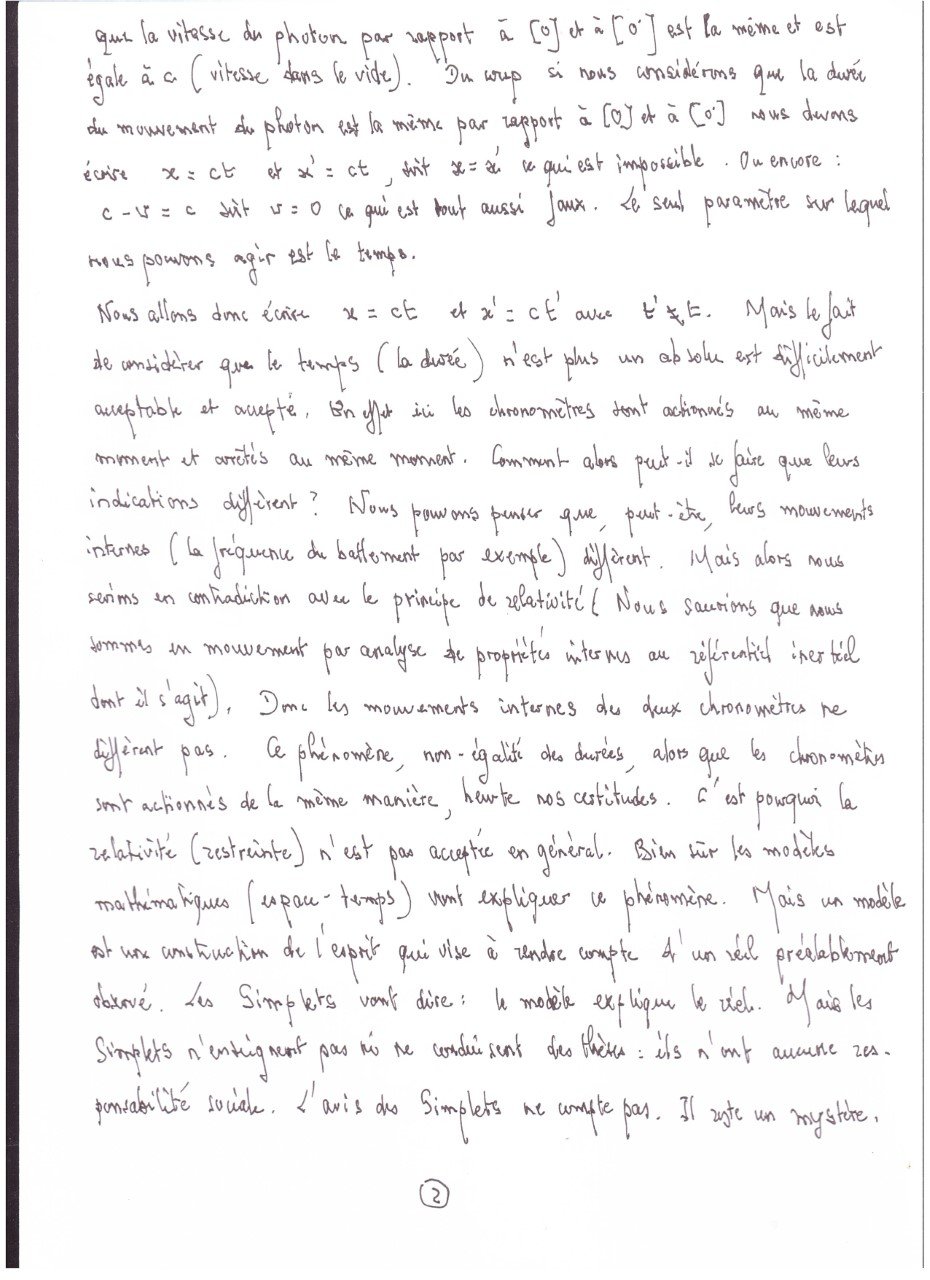 que la vitesse du photon par rapport à [O] et à [O'] est la même et est
égale à c (vitesse dans le vide). Du coup si nous considérons que la durée
du mouvement du photon est la même par rapport à [O] et à [O'] nous devons
écrire x = ct et x' = ct, soit x = x' ce qui est impossible. Ou encore :
c - v = c soit v = 0 ce qui est tout aussi faux. Le seul paramètre sur lequel
nous pouvons agir est le temps.
Nous allons donc écrire x = ct et x' = ct' avec t' ≠ t. Mais le fait
de considérer que le temps (la durée) n'est plus un absolu est difficilement
acceptable et accepté. En effet ici les chronomètres sont actionnés au même
moment et arrêtés au même moment. Comment alors peut-il se faire que leurs
indications diffèrent ? Nous pouvons penser que, peut-être, leurs mouvements
internes (la fréquence du battement par exemple) diffèrent. Mais alors nous
serions en contradiction avec le principe de relativité (Nous saurions que nous
sommes en mouvement par analyse de propriétés internes au référentiel inertiel
dont il s'agit). Donc les mouvements internes des deux chronomètres ne
diffèrent pas. Ce phénomène, non-égalité des durées, alors que les chronomètres
sont actionnés de la même manière, heurte nos certitudes. C'est pourquoi la
relativité (restreinte) n'est pas acceptée en général. Bien sûr les modèles
mathématiques (espace-temps) vont expliquer ce phénomène. Mais un modèle
est une construction de l'esprit qui vise à rendre compte d'un réel préalablement
observé. Les Simplets vont dire : le modèle explique le réel. Mais les
Simplets n'enseignent pas ni ne conduisent des thèses : ils n'ont aucune res-
ponsabilité sociale. L'avis des Simplets ne compte pas. Il reste un mystère.
2